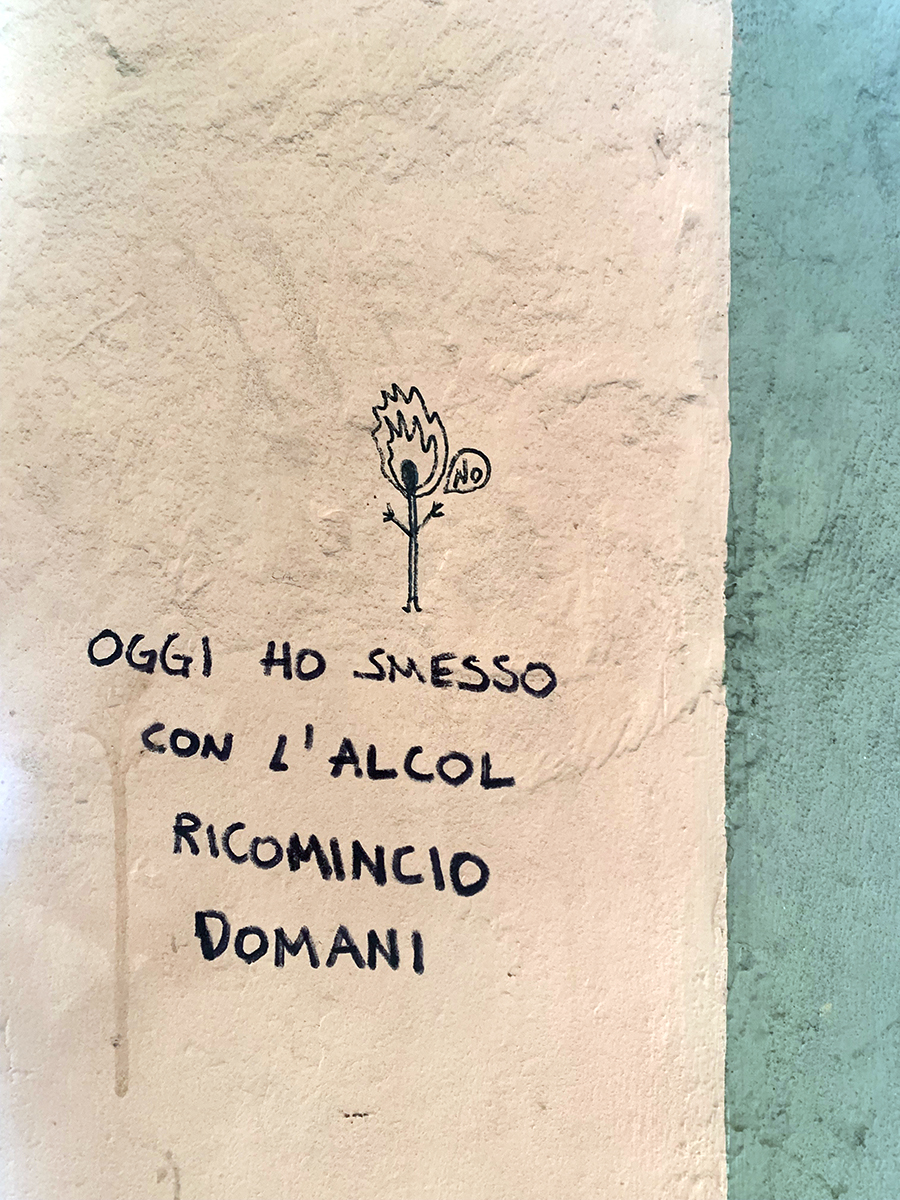 NO
OGGI HO SMESSO
CON L'ALCOL
RICOMINCIO
DOMANI